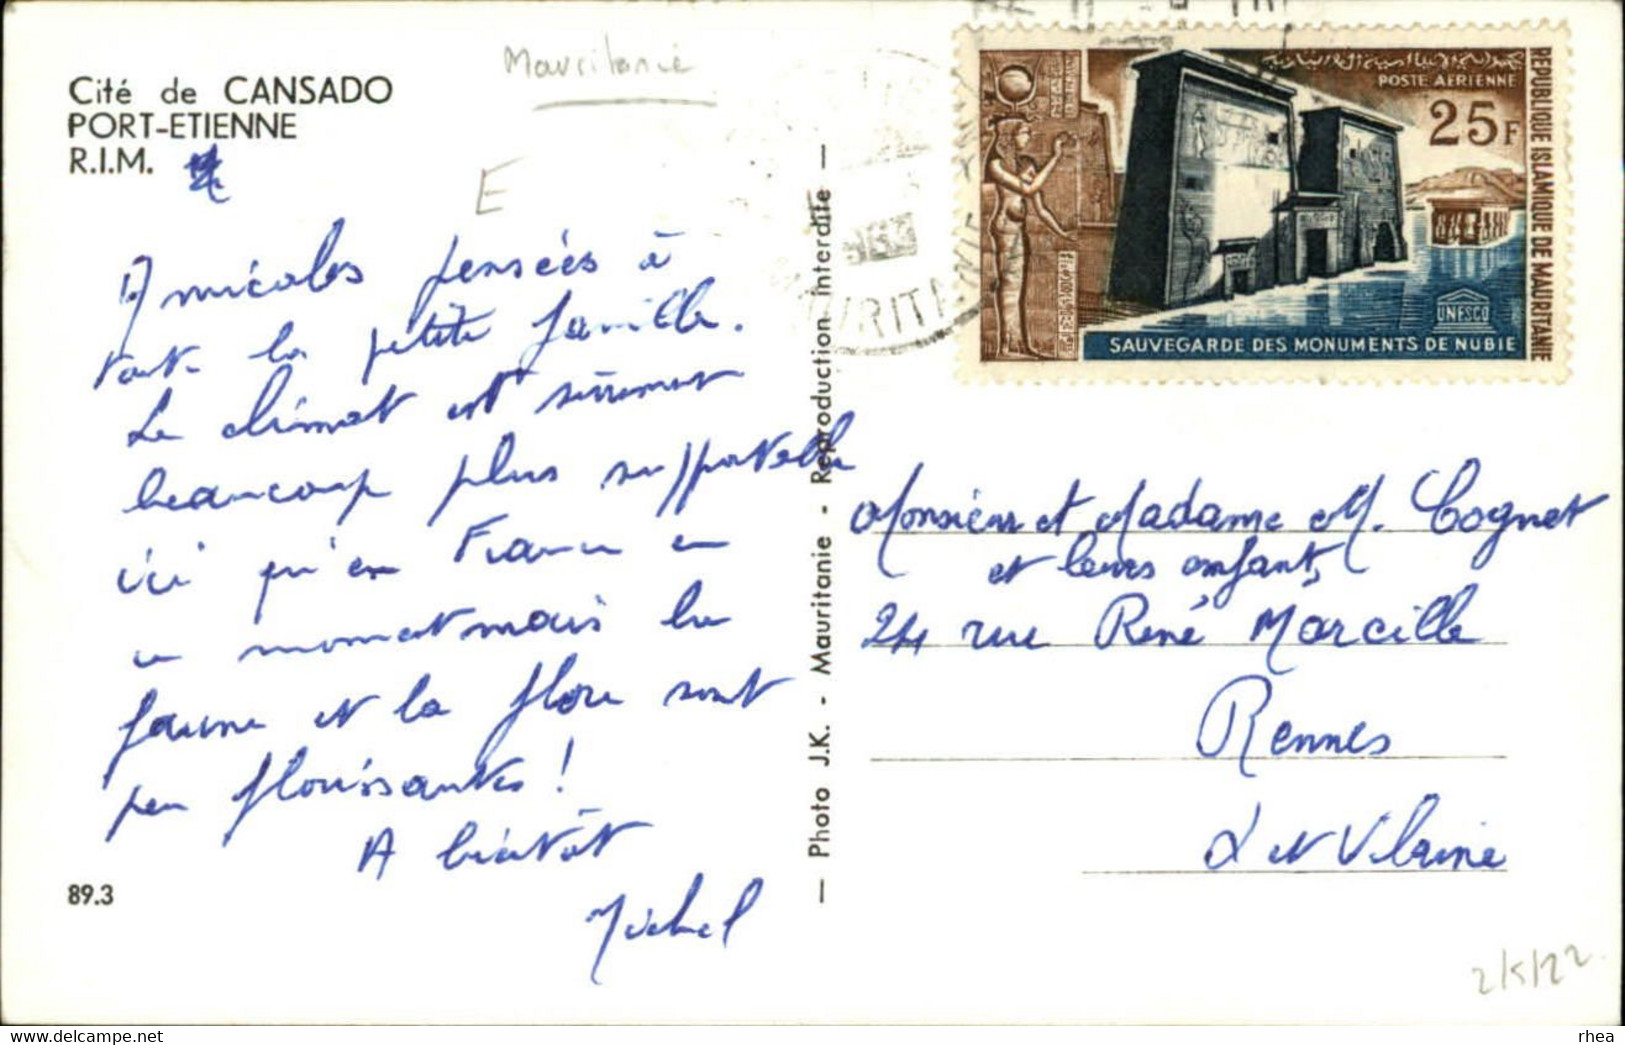 Cité de CANSADO
PORT-ETIENNE
R.I.M.
Mauritanie
E
Amicales pensées à
toute la petite famille.
Le climat est sûrement
beaucoup plus supportable
ici qu'en France en
ce moment mais la
faune et la flore sont
peu florissantes !
A bientôt
Michel
89.3
— Photo J.K. - Mauritanie - Reproduction interdite —
POSTE AERIENNE
25F
REPUBLIQUE ISLAMIQUE DE MAURITANIE
UNESCO
SAUVEGARDE DES MONUMENTS DE NUBIE
Monsieur et Madame M. Cognet
et leurs enfants,
24 rue René Marcille
Rennes
I et Vilaine
2/5/22
rhea